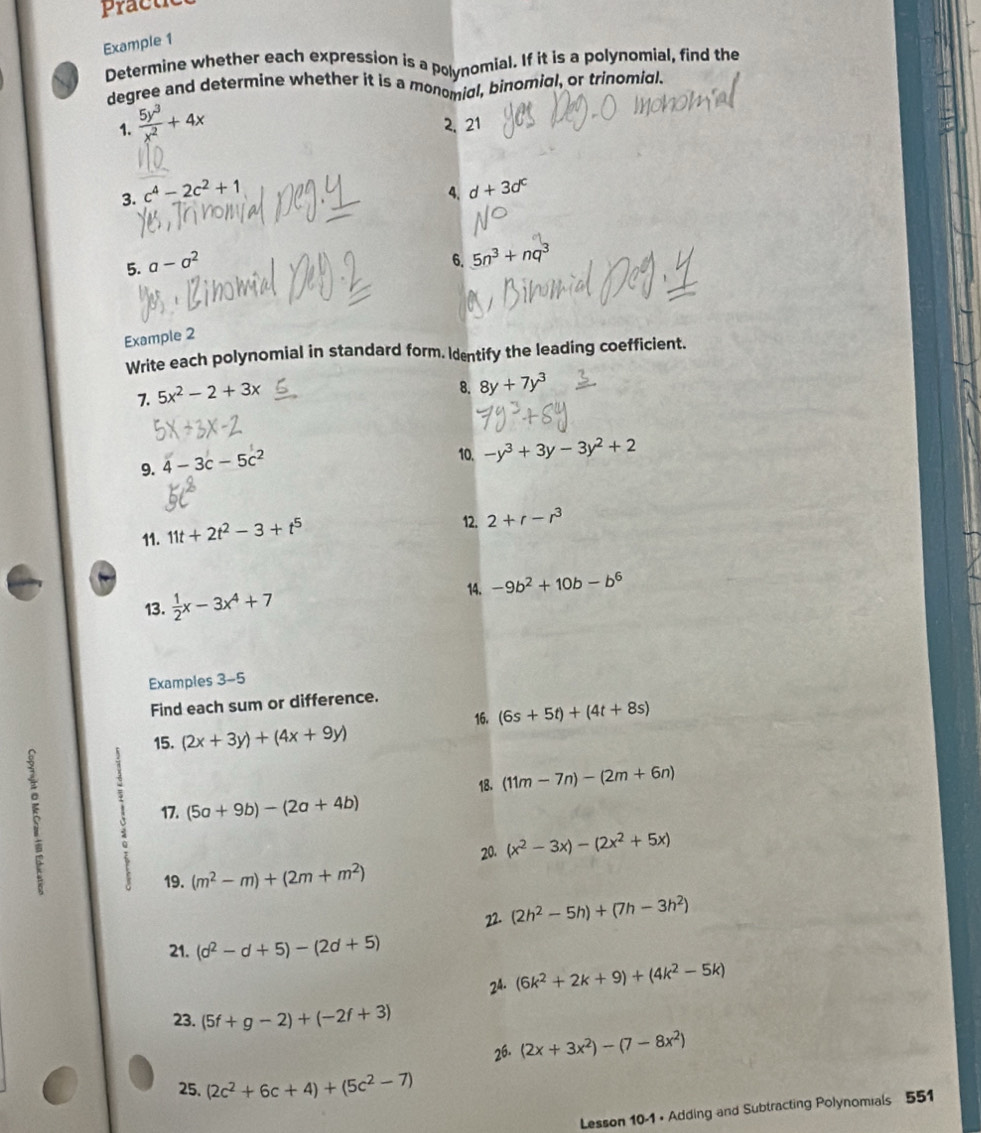 Practice
Example 1
Determine whether each expression is a polynomial. If it is a polynomial, find the
degree and determine whether it is a monomial, binomial, or trinomial.
1. 5y³/x² + 4x
2. 21 yes Deg. 0 monomial
No
3. c⁴ − 2c² + 1
4. d + 3dᶜ
Yes, Trinomial Deg. 4
NO
5. a − a²
6. 5n³ + nq³
Yes, Binomial Deg. 2
Yes, Binomial Deg. 4
Example 2
Write each polynomial in standard form. Identify the leading coefficient.
7. 5x² − 2 + 3x 5
8. 8y + 7y³ 3
5x + 3x - 2
7y³ + 8y
9. 4 − 3c − 5c²
10. −y³ + 3y − 3y² + 2
11. 11t + 2t² − 3 + t⁵
12. 2 + r − r³
13. 1/2x − 3x⁴ + 7
14. −9b² + 10b − b⁶
Examples 3–5
Find each sum or difference.
15. (2x + 3y) + (4x + 9y)
16. (6s + 5t) + (4t + 8s)
17. (5a + 9b) − (2a + 4b)
18. (11m − 7n) − (2m + 6n)
19. (m² − m) + (2m + m²)
20. (x² − 3x) − (2x² + 5x)
21. (d² − d + 5) − (2d + 5)
22. (2h² − 5h) + (7h − 3h²)
23. (5f + g − 2) + (−2f + 3)
24. (6k² + 2k + 9) + (4k² − 5k)
25. (2c² + 6c + 4) + (5c² − 7)
26. (2x + 3x²) − (7 − 8x²)
Copyright © McGraw-Hill Education
Copyright © McGraw-Hill Education
Lesson 10-1 • Adding and Subtracting Polynomials 551